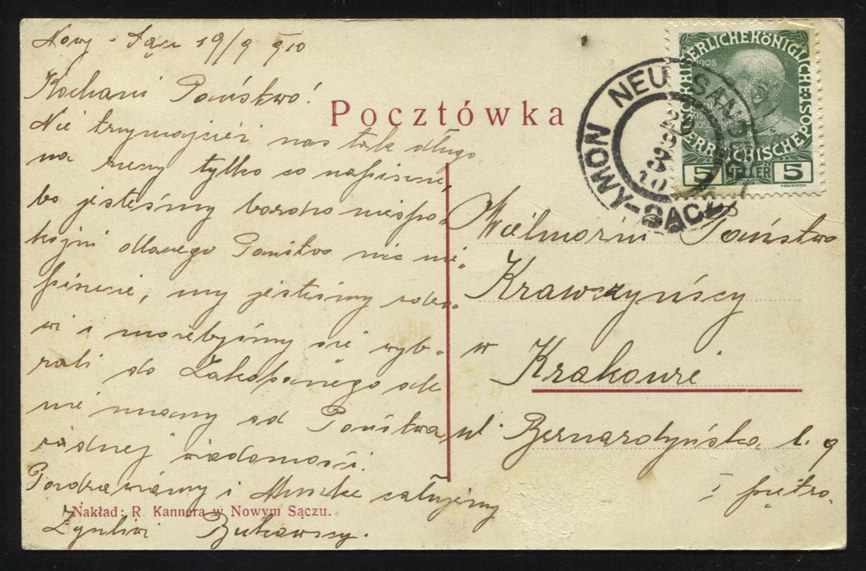 Nowy-Sącz 19/9 910
Kochani Państwo!
Nie trzymajcież nas tak długo
na rzeczy tylko co napiszcie,
bo jesteśmy bardzo niespo-
kojni dlaczego Państwo nic nie
piszecie, my jesteśmy zdro-
wi i mielibyśmy się wyb-
rali do Zakopanego ale
nie mamy od Państwa
żadnej wiadomości.
Pozdrawiamy i całujemy
Bukowscy.
Nakład: R. Kannera w Nowym Sączu.
Pocztówka
KAISERLICHE KÖNIGLICHE ÖSTERREICHISCHE POST
1908
5 HELLER 5
NEU SANDEZ
NOWY-SĄCZ
Wielmożni Państwo
Krawczyńscy
w
Krakowie
ul. Bernardyńska l. 9
I piętro.